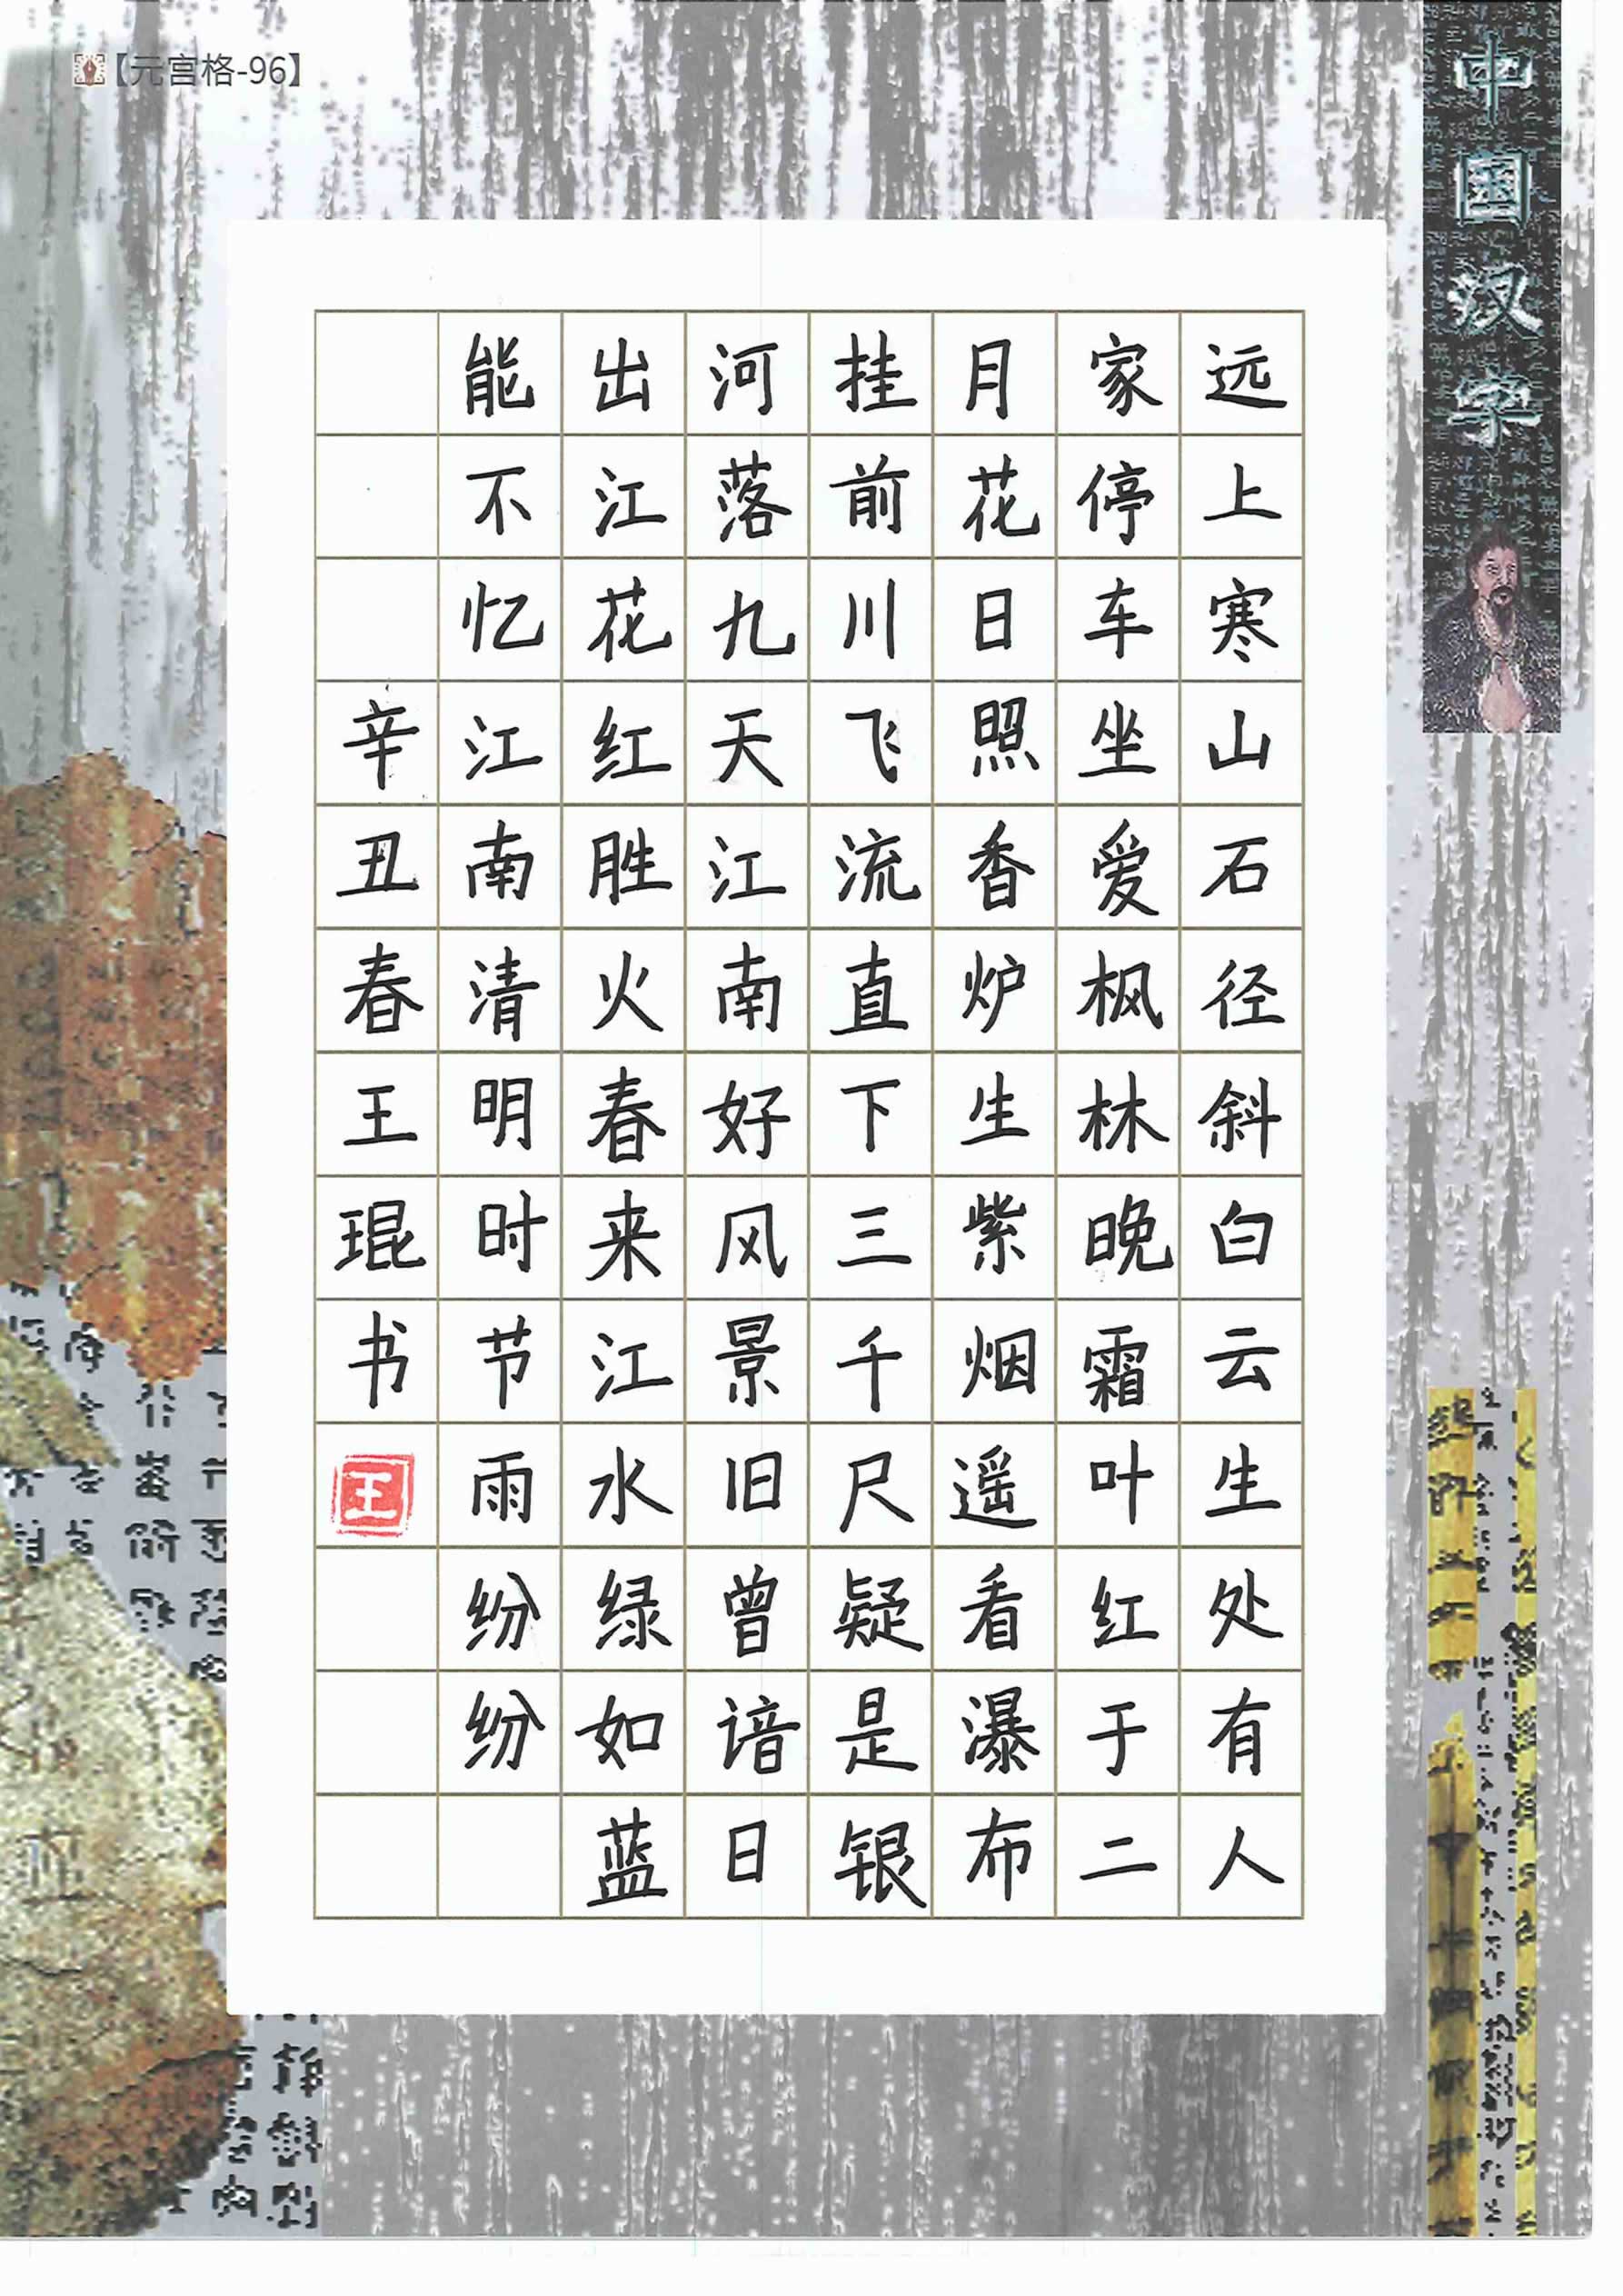 【元宫格-96】
中国汉字
远上寒山石径斜白云生处有人
家停车坐爱枫林晚霜叶红于二
月花日照香炉生紫烟遥看瀑布
挂前川飞流直下三千尺疑是银
河落九天江南好风景旧曾谙日
出江花红胜火春来江水绿如蓝
能不忆江南清明时节雨纷纷
辛丑春王琨书
王